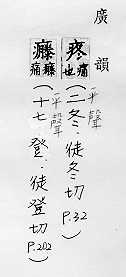 廣韻
疼 痛也 (二冬.徒冬切 P.32)
平聲
痛 (十七登.徒登切 P.202)
平聲